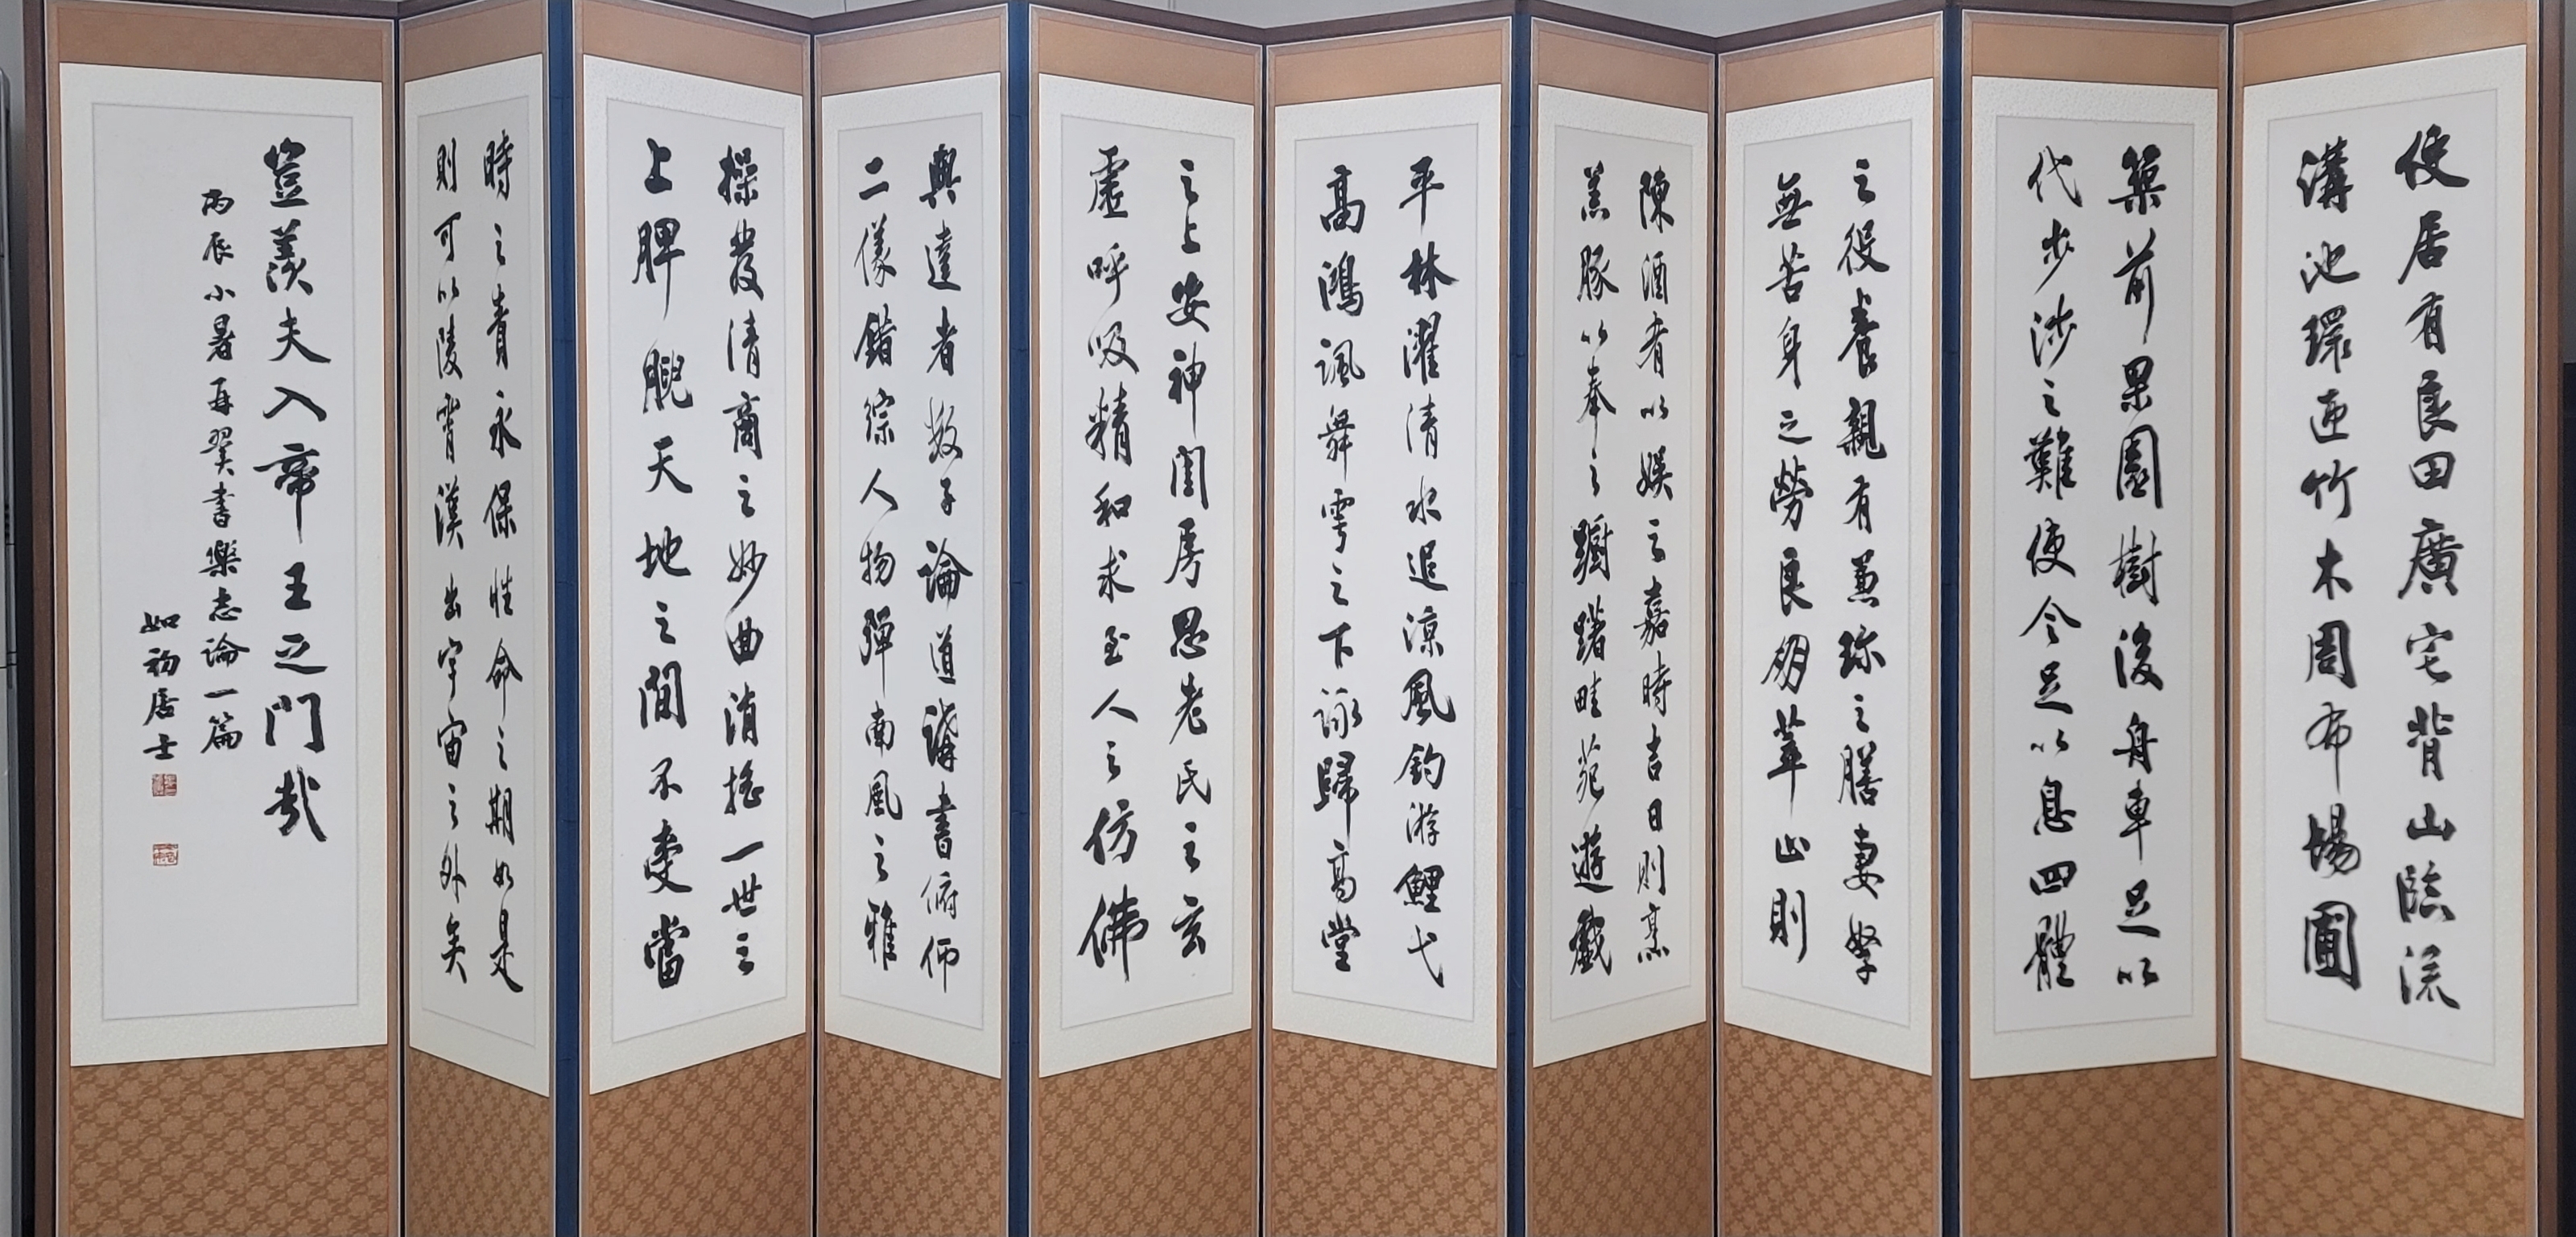 使居有良田廣宅背山臨流
溝池環匝竹木周布場圃
築前果園樹後舟車足以
代步涉之難使令足以息四體
之役養親有兼珍之膳妻孥
無苦身之勞良朋萃止則
陳酒肴以娛之嘉時吉日則烹
羔豚以奉之躕躇畦苑遊戲
平林濯清水追涼風釣游鯉弋
高鴻諷舞雩之下詠歸高堂
之上安神閨房思老氏之玄
虛呼吸精和求至人之仿佛
與達者數子論道講書俯仰
二儀錯綜人物彈南風之雅
操發清商之妙曲消搖一世之
上睥睨天地之間不受當
時之責永保性命之期如是
則可以陵霄漢出宇宙之外矣
豈羨夫入帝王之門哉
丙辰小暑再翼書樂志論一篇
如初居士